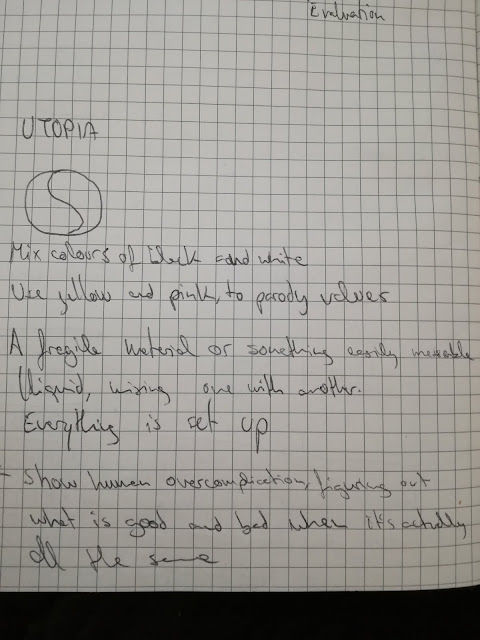 Evaluation
UTOPIA
Mix colours of black and white
Use yellow and pink, to parody values
A fragile material or something easily
(liquid, mixing one with another.
Everything is set up
- Show human overcomplication, figuring out
what is good and bad when it's actually
all the same